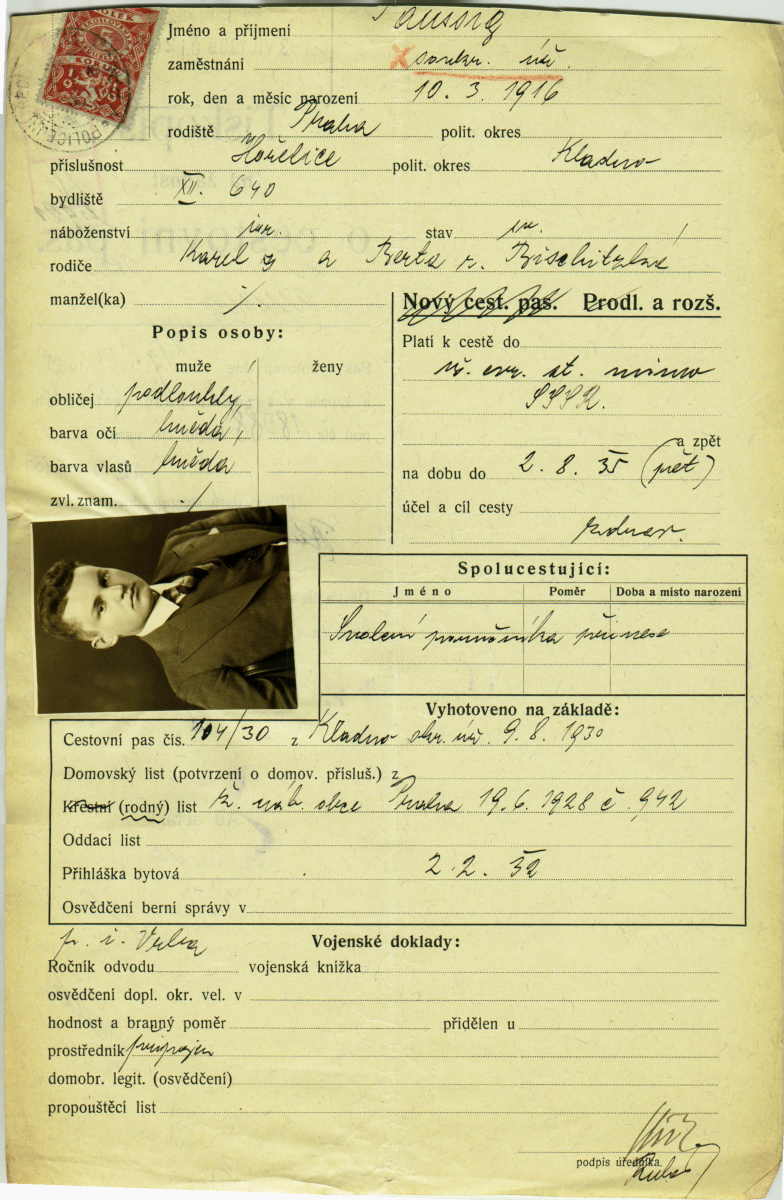 KOLEK
ČESKOSLOVENSKÁ
5
KORUN
POLICEJNÍ
Jméno a příjmení
zaměstnání × soukr. úř.
rok, den a měsíc narození 10. 3. 1916
rodiště Praha polit. okres
příslušnost Hořelice polit. okres Kladno
bydliště XII. 640
náboženství isr. stav sv.
rodiče Karel a Berta r. Bischitzká
manžel(ka) ·/.
Nový cest. pas. Prodl. a rozš.
Popis osoby:
Platí k cestě do
muže ženy
vš. evr. st. mimo
obličej podlouhlý
SSSR.
barva očí hnědá
a zpět
barva vlasů hnědá
na dobu do 2. 8. 35 (pět)
zvl. znam. ·/.
účel a cíl cesty
Spolucestující:
Jméno Poměr Doba a místo narození
Svolení poručníka přinese
Vyhotoveno na základě:
Cestovní pas čís. 104/30 z Kladno okr. úř. 9. 8. 1930
Domovský list (potvrzení o domov. přísluš.) z
Křestní (rodný) list ž. náb. obce Praha 19. 6. 1928 č. 942
Oddací list
Přihláška bytová 2. 2. 32
Osvědčení berní správy v
Vojenské doklady:
Ročník odvodu vojenská knížka
osvědčení dopl. okr. vel. v
hodnost a branný poměr přidělen u
prostředník
domobr. legit. (osvědčení)
propouštěcí list
podpis úředníka.